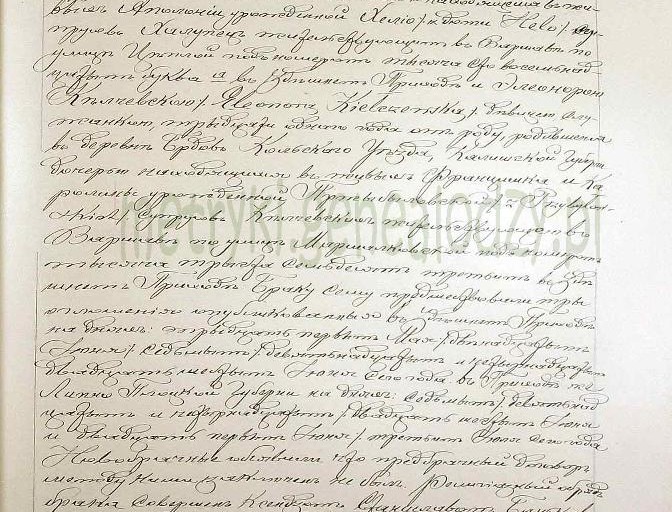 Аполоніи урожденной Хелго /z domu Hele/ су-
пруговъ Халупецъ жительствующихъ въ Варшавѣ по
улицѣ подъ номеромъ тысяча сто восемьнад-
цатымъ буква а въ здѣшнемъ Приходѣ и Элеонорою
Кѣлчевскою /Eleonora Kiełczewska/ дѣвицею слу-
жанкою, тридцати одного года отъ роду, родившеюся
въ деревнѣ Кольскаго Уѣзда, Калишской Губерн.
дочерью находящихся въ живыхъ Францишка и Ка-
ролины урожденной
супруговъ Кѣлчевскихъ жительствующею въ
Варшавѣ по улицѣ Маршалковской подъ номеромъ
тысяча триста семьдесятъ третьимъ въ здѣ-
шнемъ Приходѣ. Браку сему предшествовали три
оглашенія опубликованныя въ здѣшнемъ Приходѣ
на дняхъ: тридцать первомъ Мая /двѣнадцатымъ
Іюня/ седьмымъ /девятнадцатымъ и четырнадцатымъ
двадцать шестымъ Іюня сего года въ Приходѣ же
Липно Плоцкой Губерніи на дняхъ: седьмымъ /девятнад-
цатымъ и четырнадцатымъ /двадцать шестымъ Іюня
и двадцать первымъ Іюня /третьимъ Іюля сего года
Новобрачные объявили что предбрачный договоръ
между ними заключенъ не былъ. Религіозный обрядъ
брака совершенъ Ксендзомъ Станиславомъ
metryki.genealodzy.pl